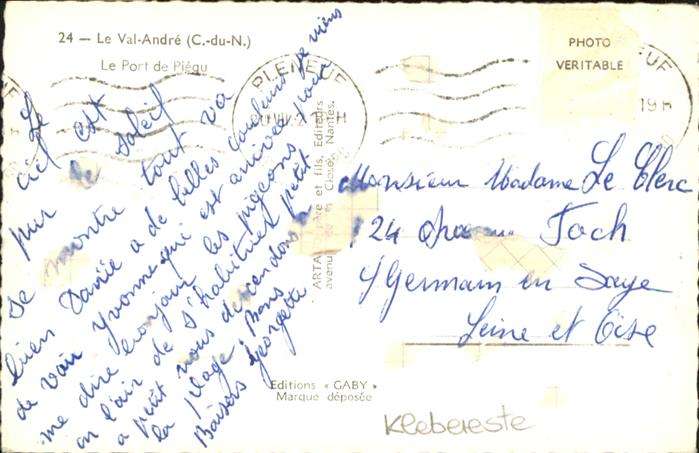 24 — Le Val-André (C.-du-N.)
Le Port de Piégu
PHOTO
VERITABLE
PLENEUF
19H
Le
ciel est
pur le soleil
se montre tout va
bien Danie a de belles couleurs je viens
de voir Yvonne qui est arrivée pour
me dire bonjour les pigeons
on l'air de s'habituer petit
a petit nous descendons
la plage. Bons
Baisers Georgette
Monsieur Madame Le Clerc
24 Foch
S/Germain en Laye
Seine et Oise
ARTAUD et fils, Editeurs
avenue de Close, Nantes.
Editions « GABY »
Marque déposée
Klebereste